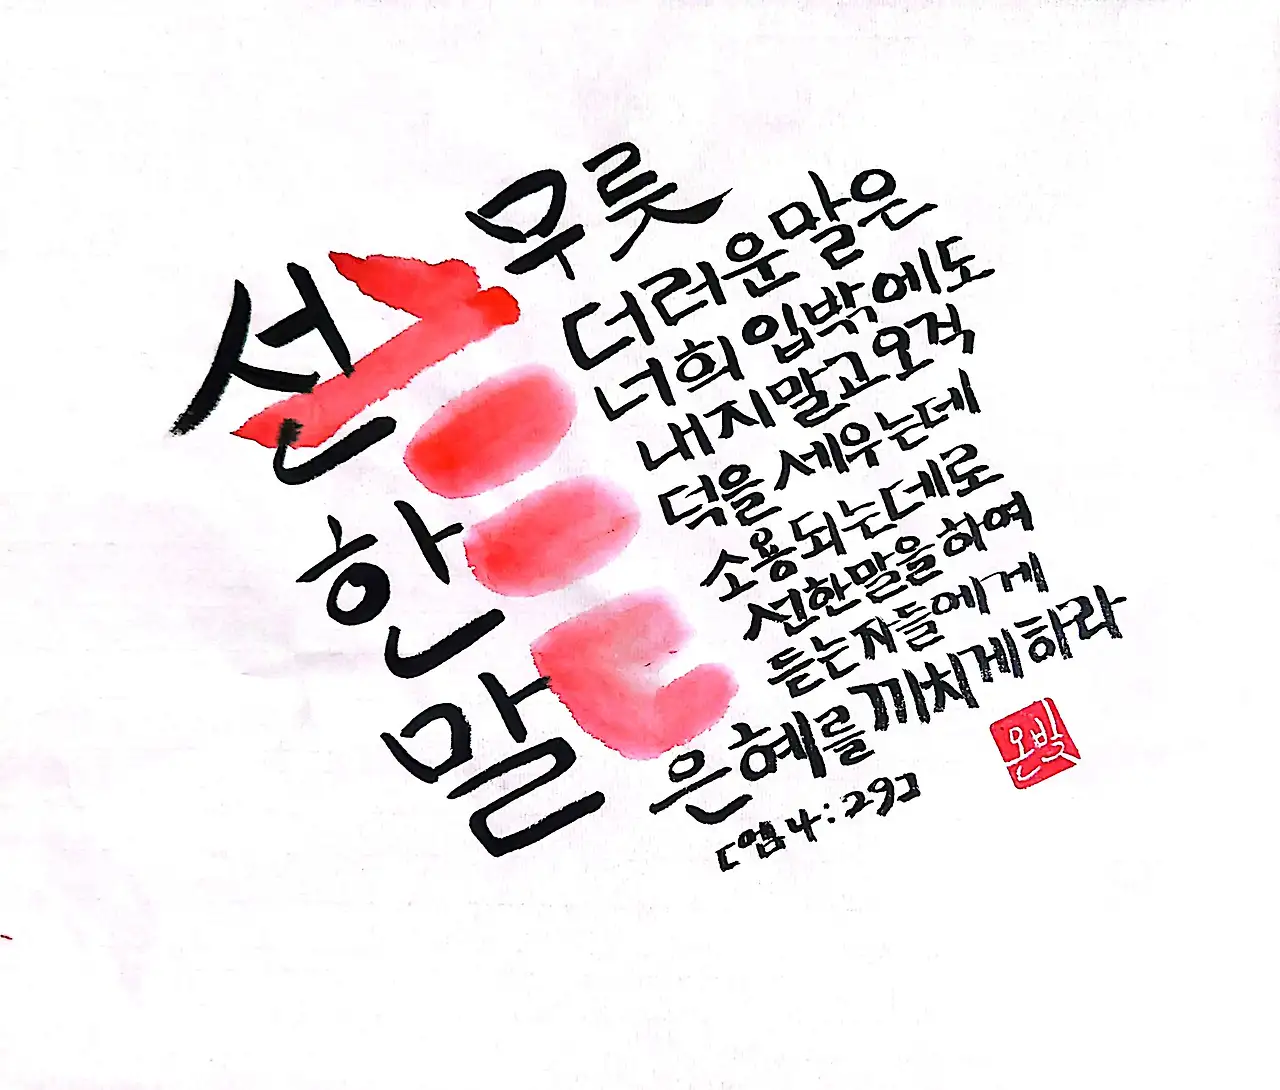 선
한
말
무릇
더러운 말은
너희 입 밖에도
내지 말고 오직
덕을 세우는데
소용되는데로
선한 말을 하여
듣는 자들에게
은혜를 끼치게 하라
[엡 4:29]
온빛